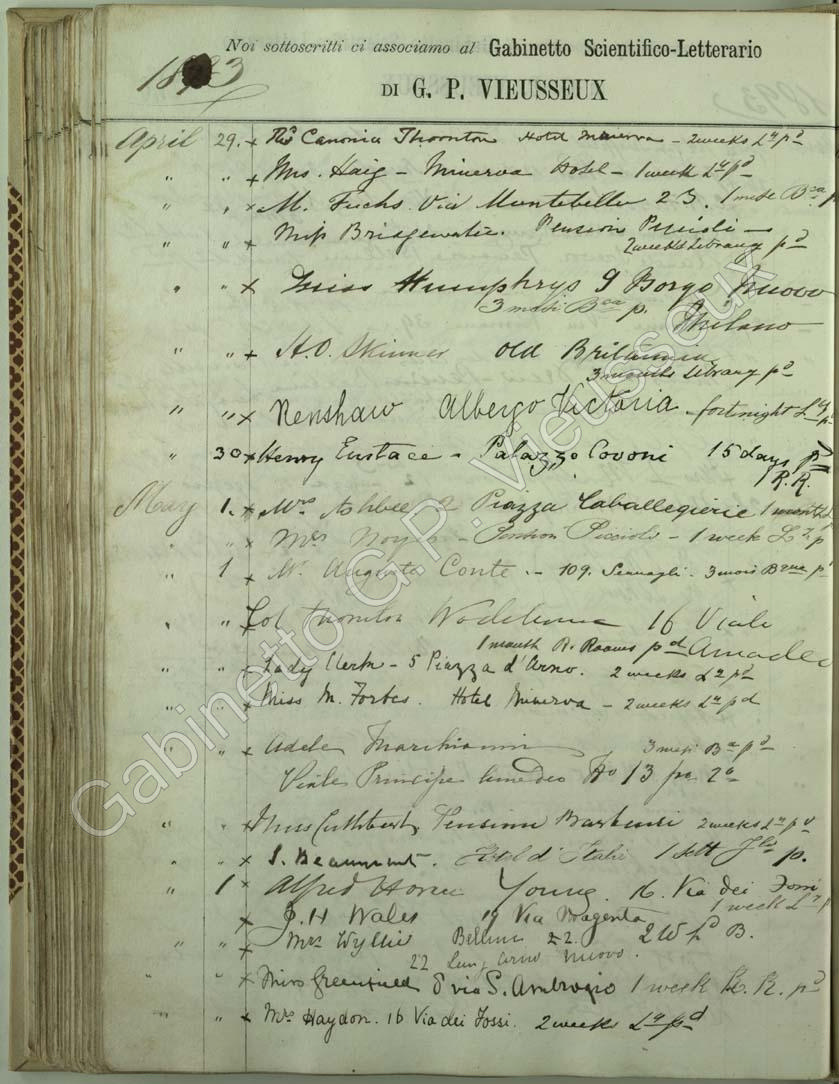 Noi sottoscritti ci associamo al Gabinetto Scientifico-Letterario
DI G. P. VIEUSSEUX
1893
April 29. x Thornton Hotel Minerva - 2 weeks Ly pd
" " x Mrs. Haig - Minerva Hotel - 1 week Ly pd
" " x M. Fuchs Via Montebello 23. 1 mese Bca p
" " x Miss Bridgewater. Pension Piccioli -
2 weeks Library pd
" " x Miss Humphrys 9 Borgo Nuovo
3 mesi Bca p. Milano
" " x H.O. Skinner Old Britannia
3 months Library pd
" " x Renshaw Albergo Victoria - fortnight Ly p
" 30 x Henry Eustace - Palazzo Covoni 15 days pd
R.R.
May 1. x Mrs Ashbee 2 Piazza 1 month L
" " x Mrs Noyes - Pension Piccioli - 1 week Ly p
" 1 x Mr. Auguste Conte - 109. Serragli. 3 mois Bque p
" " x Col Thornton Wodehouse 16 Viale
1 month R. Rooms pd Amadeo
" " x Lady Clerk - 5 Piazza d'Arno. 2 weeks Ly pd
" " x Miss M. Forbes. Hotel Minerva - 2 weeks Ly pd
" " x Adele 3 mesi Ba pd
Viale Principe Amedeo No 13 po 2o
" " x Miss Cuthbert, Pensione Barbensi 2 weeks Ly pd
" " x S. Beaumont. Hotel d'Italie 1 sett p.
" 1 x Alfred Young. 16. Via dei Fossi
1 week Ly p
x J.H Wales 19 Via Magenta
" " x Mrs Wyllie 22. 2 W pd B.
22 Lung Arno Nuovo.
" " x Miss Greenfield 8 via S. Ambrogio 1 week R. R. pd
" " x Mrs Haydon. 16 Via dei Fossi. 2 weeks Ly pd
Gabinetto G.P. Vieusseux